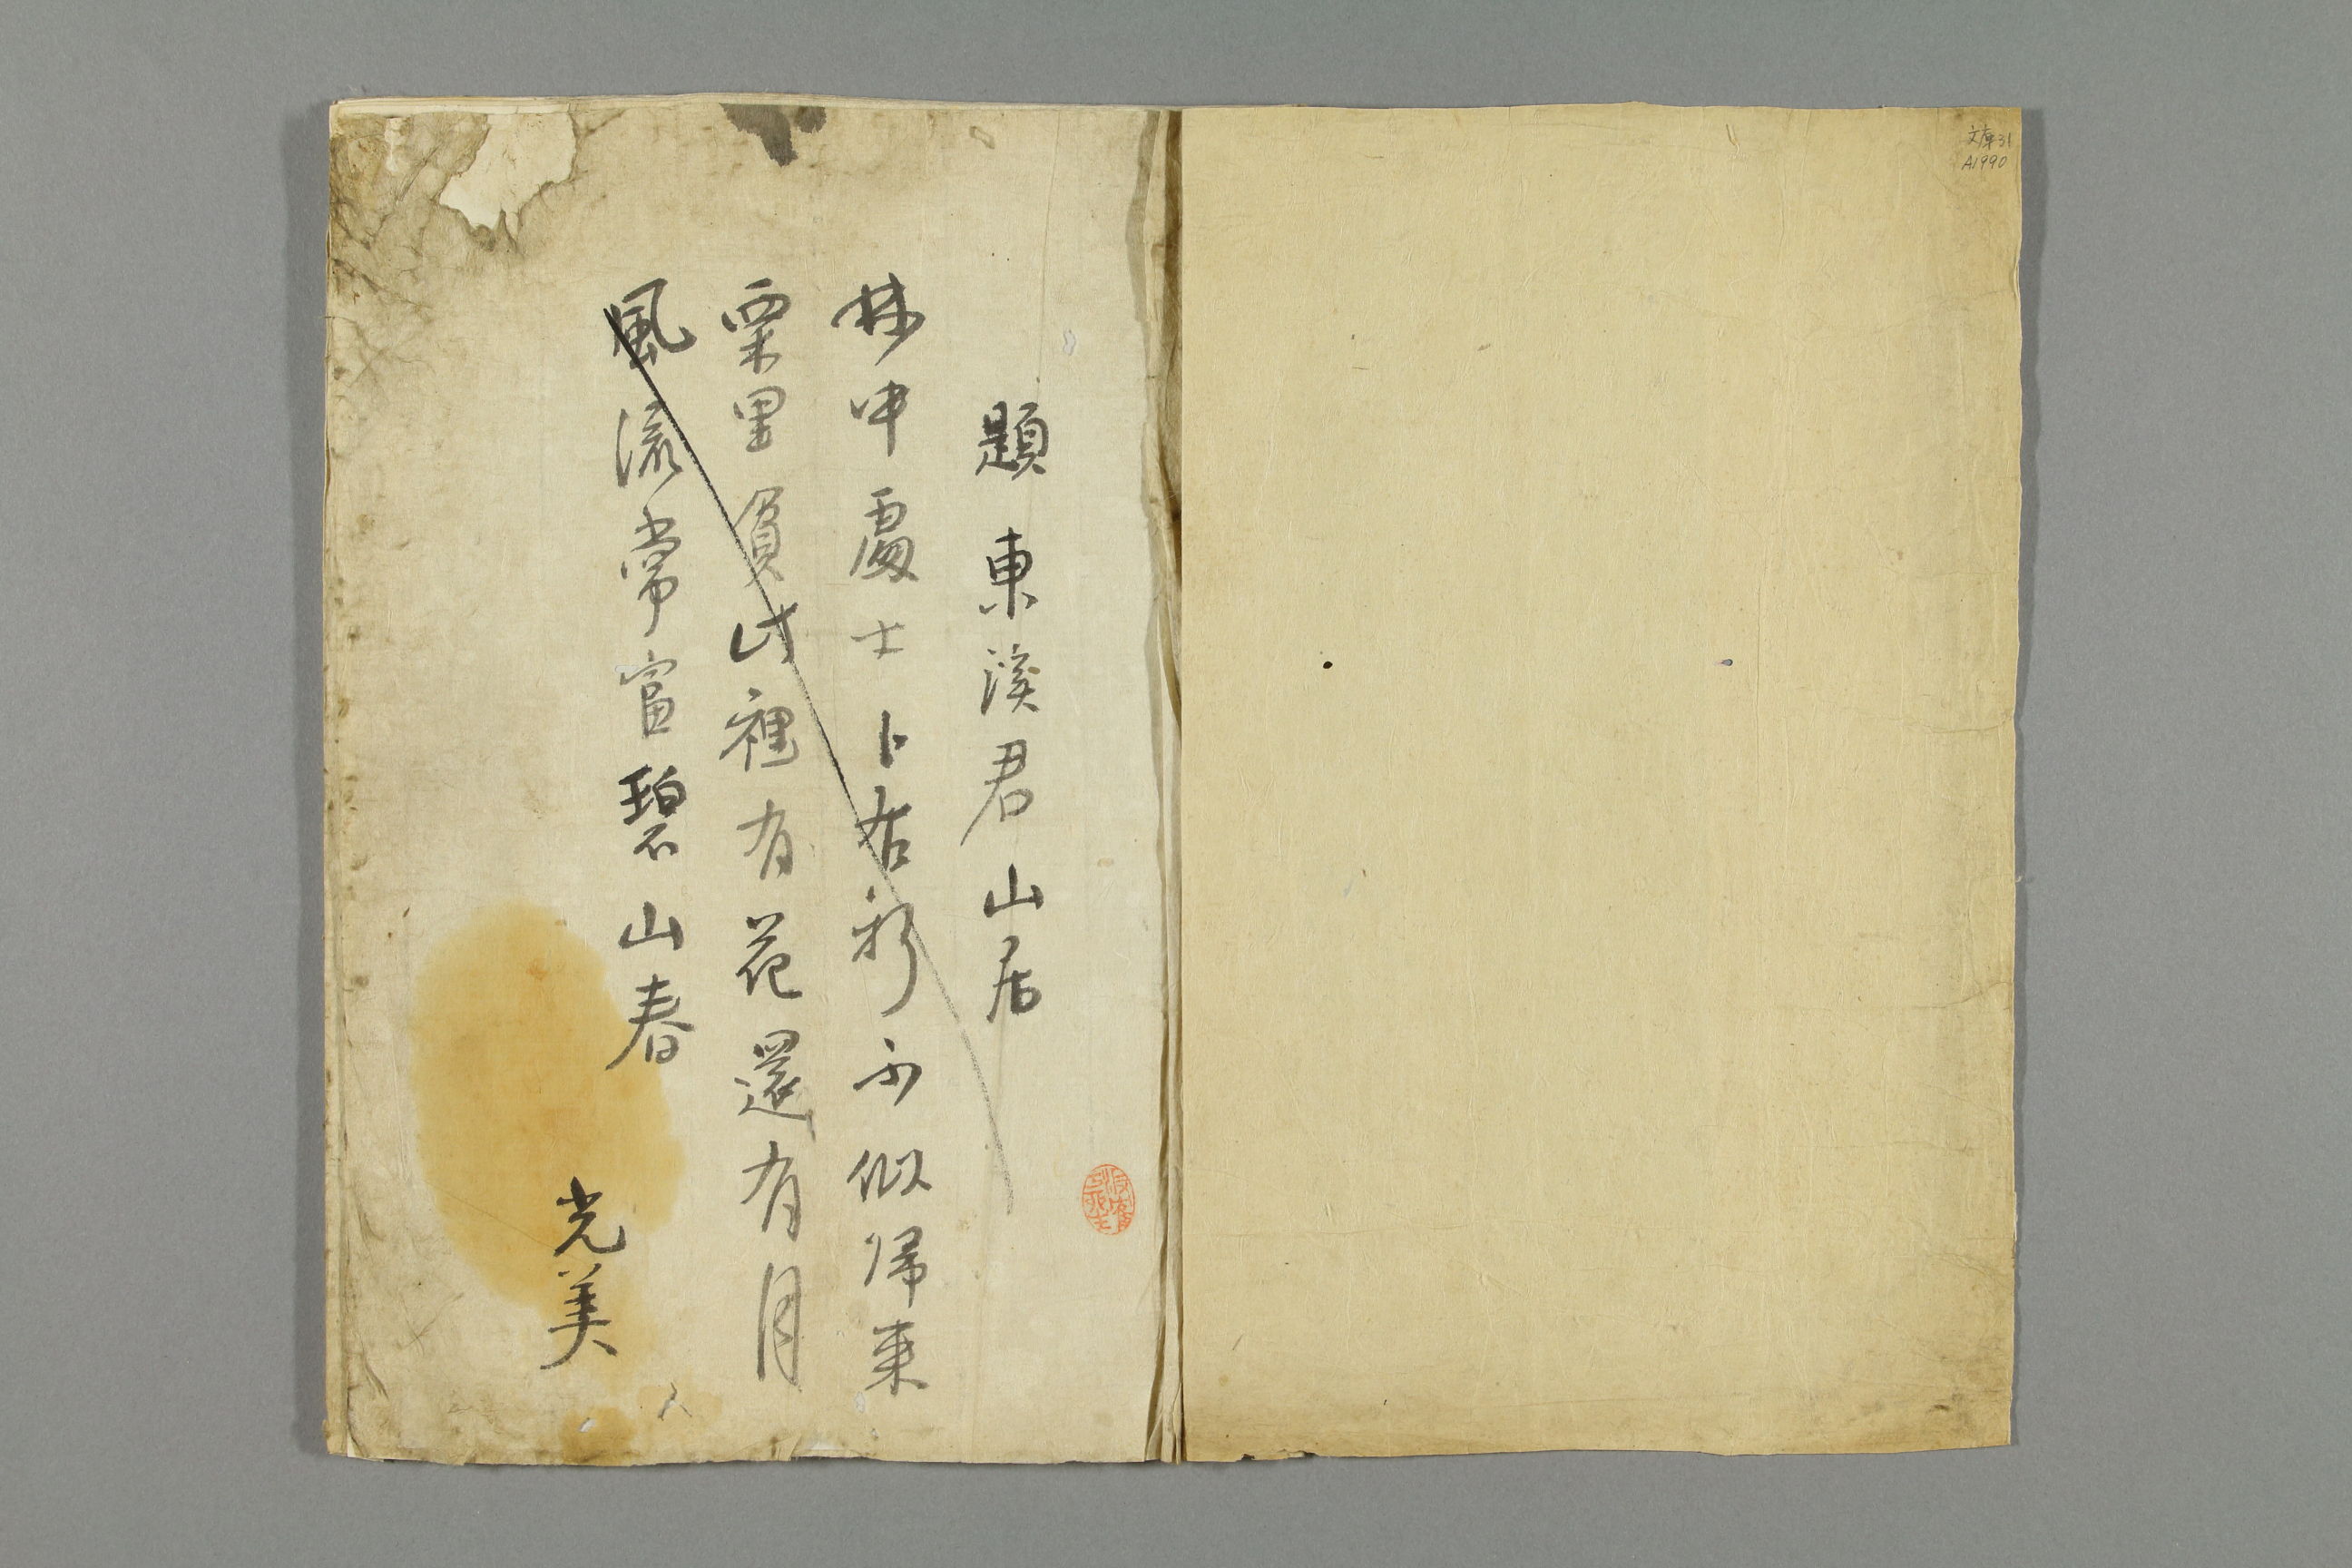 題東溪君山居
林中處士卜居新不似歸来
栗里貧此裡有花還有月
風流常富碧山春
光美
文庫31
A1990